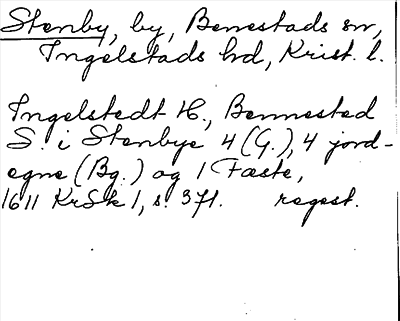 Stenby, by, Benestads sn,
Ingelstads hd, Krist. l.
Ingelstedt H., Bennested
S. i Stenbye 4 (G.), 4 jord-
egne (Bg.) og 1 Fæste,
1611 KrSk 1, s. 371. regest.